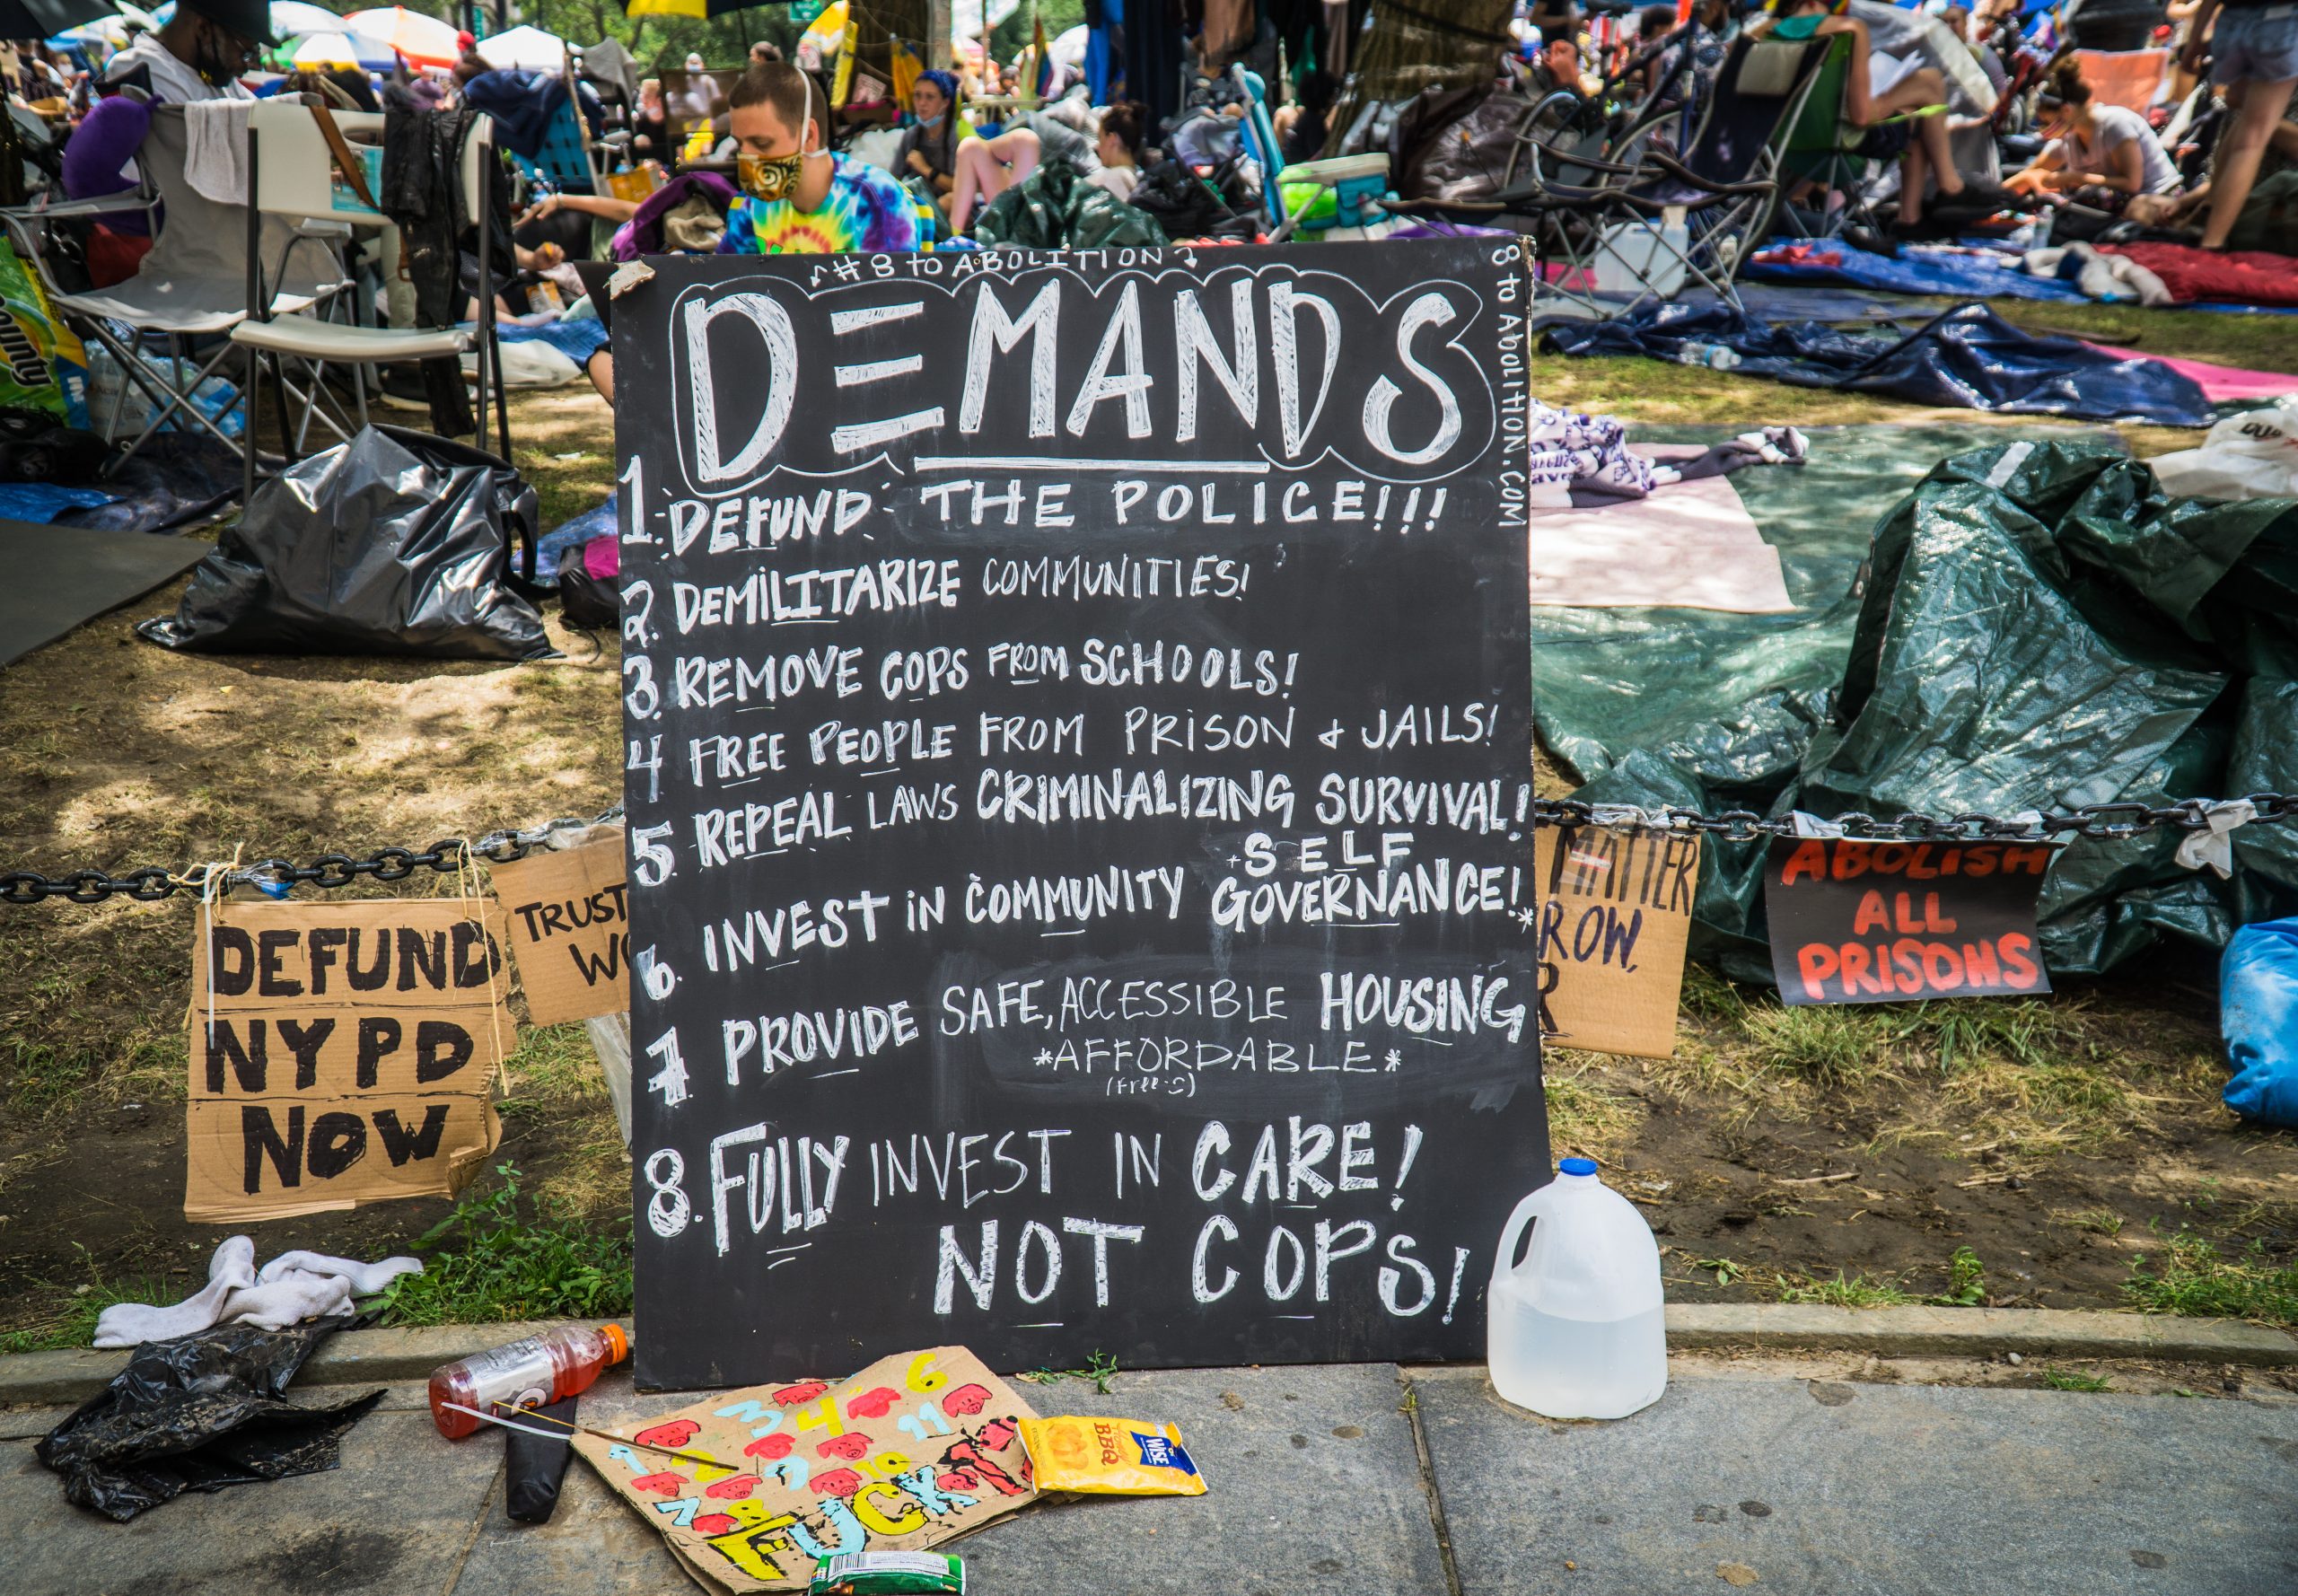 #8 TO ABOLITION
8 TO ABOLITION.COM
DEMANDS
1. DEFUND THE POLICE!!!
2. DEMILITARIZE COMMUNITIES!
3. REMOVE COPS FROM SCHOOLS!
4 FREE PEOPLE FROM PRISON + JAILS!
5. REPEAL LAWS CRIMINALIZING SURVIVAL!
6. INVEST IN COMMUNITY + SELF
GOVERNANCE!*
7 PROVIDE SAFE, ACCESSIBLE HOUSING
*AFFORDABLE*
8. FULLY INVEST IN CARE!
NOT COPS!
DEFUND
NYPD
NOW
TRUST
MATTER
ROW,
R
ABOLISH
ALL
PRISONS
6
3 4 11
1 2 9 10
7 8
FUCK
WISE
BBQ